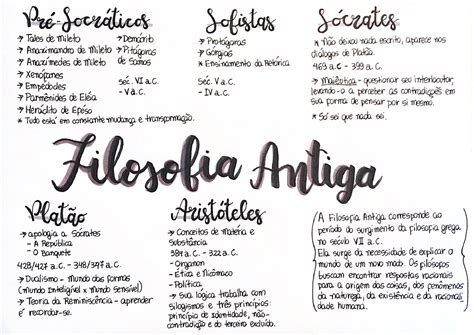 Pré-Socráticos
→ Tales de Mileto
→ Anaximandro de Mileto
→ Anaxímedes de Mileto
→ Xenófanes
→ Empédocles
→ Parmênides de Eléia
→ Heráclito de Epéso
→ Demócrito
→ Pitágoras de Samos
Séc. VI a.C.
- V d.C.
* Tudo está em constante mudança e transformação.
Sofistas
→ Protágoras
→ Górgias
* Ensinamento da Retórica
séc. V a.C.
- IV a.C.
Sócrates
* Não deixou nada escrito, aparece nos
diálogos de Platão.
469 a.C - 399 a.C.
→ Maiêutica - questionar seu interlocutor,
levando-o a perceber as contradições em
sua forma de pensar por si mesmo.
* Só sei que nada sei.
Filosofia Antiga
Platão
→ apologia a Sócrates
- A República
- O Banquete
428/427 a.C. - 348/347 a.C.
→ Dualismo - Mundo das formas
(mundo Inteligível x Mundo Sensível)
→ Teoria da Reminiscência - aprender
é recordar-se.
Aristóteles
→ Conceitos de Matéria e
Substância
384 a.C. - 322 a.C.
- Organon
- Ética a Nicômaco
- Política
* sua lógica trabalha com
silogismos e três princípios:
princípio de identidade, não-
contradição e do terceiro excluído.
A Filosofia Antiga corresponde ao
período do surgimento da filosofia grega
no século VII a.C.
Ela surge da necessidade de explicar o
mundo de um novo modo. Os filósofos
buscam encontrar respostas racionais
para a origem das coisas, dos fenômenos
da natureza, da existência e da racionali-
dade humana.